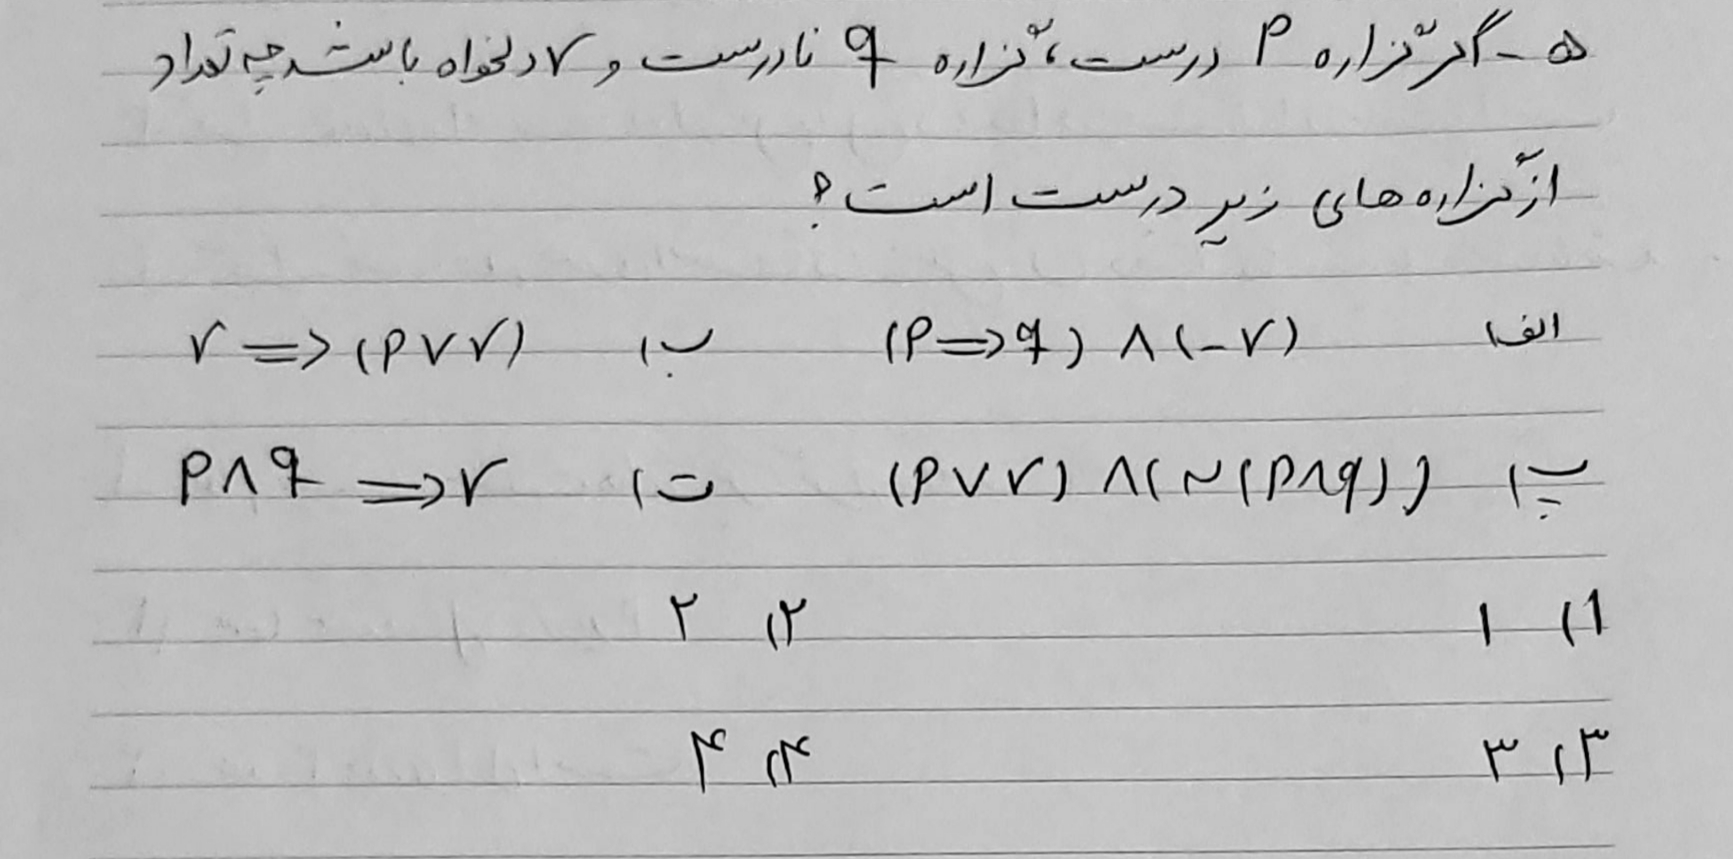 ۵ - گر گزاره P درست، گزاره q نادرست و r دلخواه باشد چه تعداد
از گزاره های زیر درست است؟
الف) (P => q) ∧ (-r) ب) r => (P ∨ r)
پ) (P ∨ r) ∧ (~(P ∧ q)) ت) P ∧ q => r
۱) ۱ ۲) ۲
۳) ۳ ۴) ۴